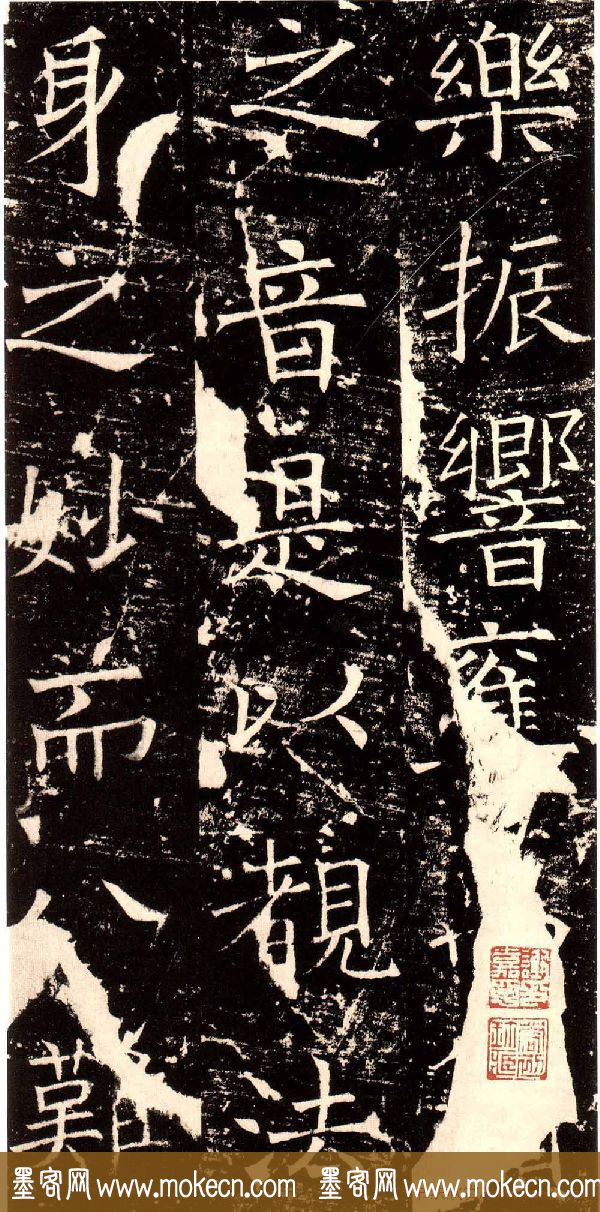 樂振響雍
之音是以覩法
身之妙而八難
墨客网 www.mokecn.com 墨客网 www.mokecn.com